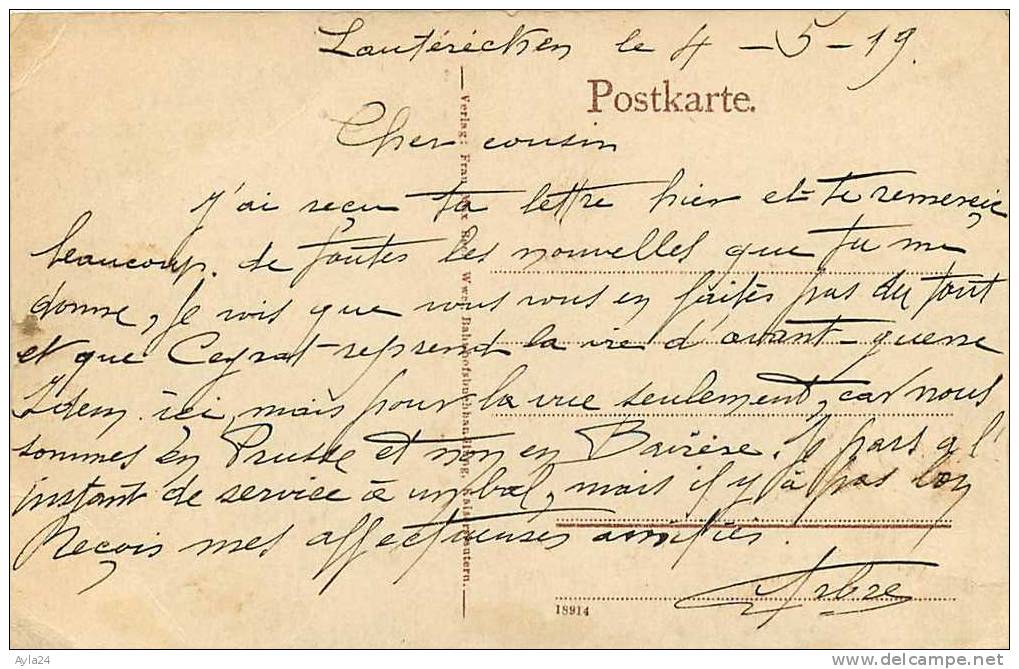 Lautérécken le 4 - 5 - 19.
Postkarte.
Cher cousin
J'ai reçu ta lettre hier et te remercie
beaucoup. de toutes les nouvelles que tu me
donne, Je vois que vous vous en faites pas du tout
et que Ceyrat reprend la vie d'avant-guerre
Idem ici, mais pour la vue seulement, car nous
sommes en Prusse et non en Bavière. Je pars a l'
instant de service à un bal, mais il y a pas
Reçois mes affectueuses amitiés.
Arbre
Verlag: Frau Wwe. Bahnhofsbuchhandlung, Kaiserslautern.
18914
Ayla24
www.delcampe.net